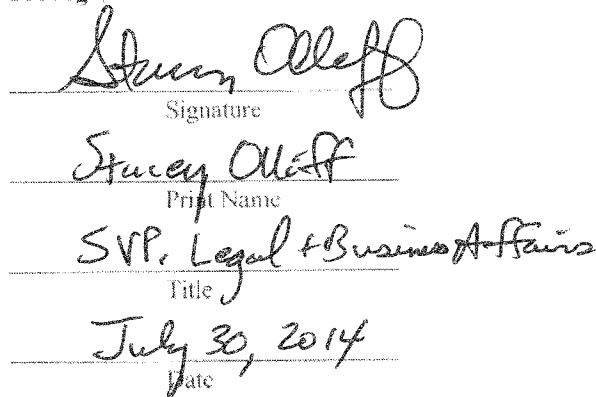 Stacey Olliff
Signature
Stacey Olliff
Print Name
SVP, Legal + Business Affairs
Title
July 30, 2014
Date